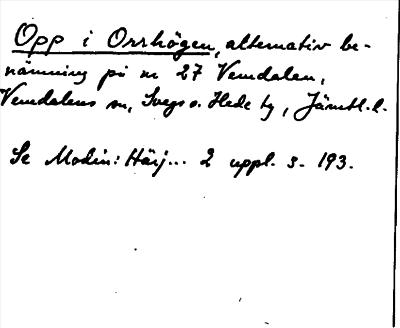 Opp i Orrhögen, alternativ be-
nämning på nr 27 Vemdalen,
Vemdalens sn, Svegs o. Hede tg, Jämtl. l.
Se Modin: Härj... 2 uppl. s. 193.